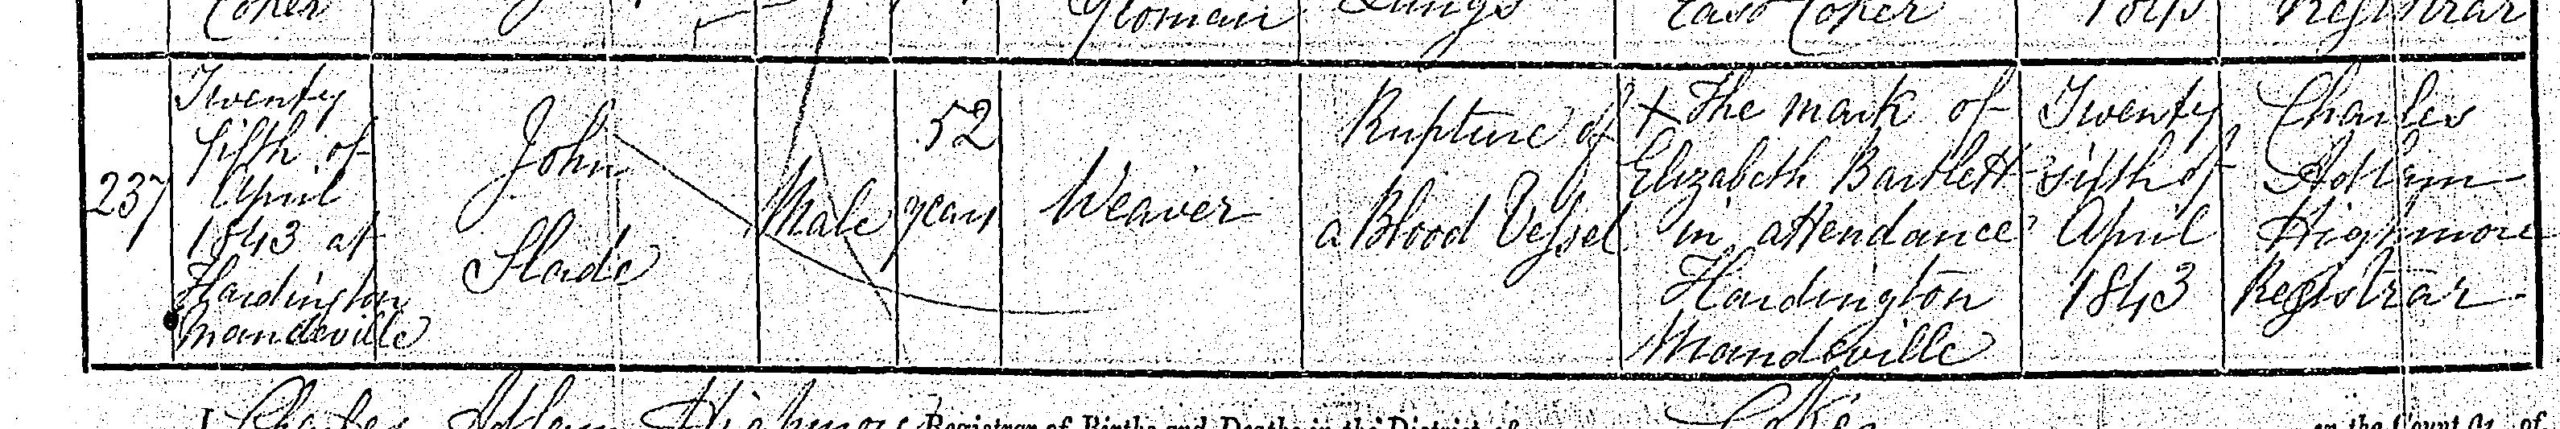 Coker
Yeoman
Lungs
East Coker
1843
Registrar
237
Twenty
fifth of
April
1843 at
Hardington
Mandeville
John
Slade
Male
52
years
Weaver
Rupture of
a Blood Vessel
X The mark of
Elizabeth Bartlett
in attendance
Hardington
Mandeville
Twenty
fifth of
April
1843
Charles
Adlam
Highmore
Registrar
I Charles Adlam Highmore Registrar of Births and Deaths in the District of Coker in the County of